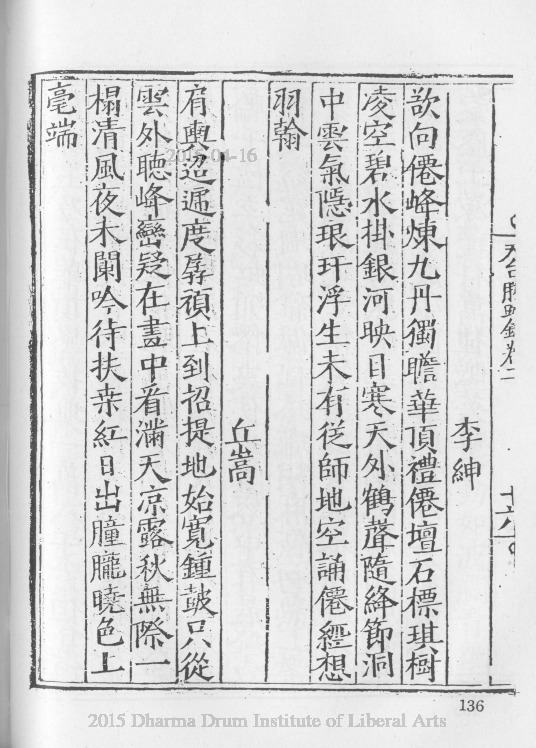 天台勝蹟錄卷二
十六
李紳
欲向僊峰煉九丹獨瞻華頂禮僊壇石標琪樹
凌空碧水掛銀河映目寒天外鶴聲隨絳節洞
中雲氣隱琅玕浮生未有從師地空誦僊經想
羽翰
丘嵩
肩輿迢遞度孱顏上到招提地始寬鍾皷只從
雲外聽峰巒疑在畫中看滿天凉露秋無際一
榻清風夜未闌吟待扶桒紅日出朣朧曉色上
毫端
2015-04-16
136
2015 Dharma Drum Institute of Liberal Arts